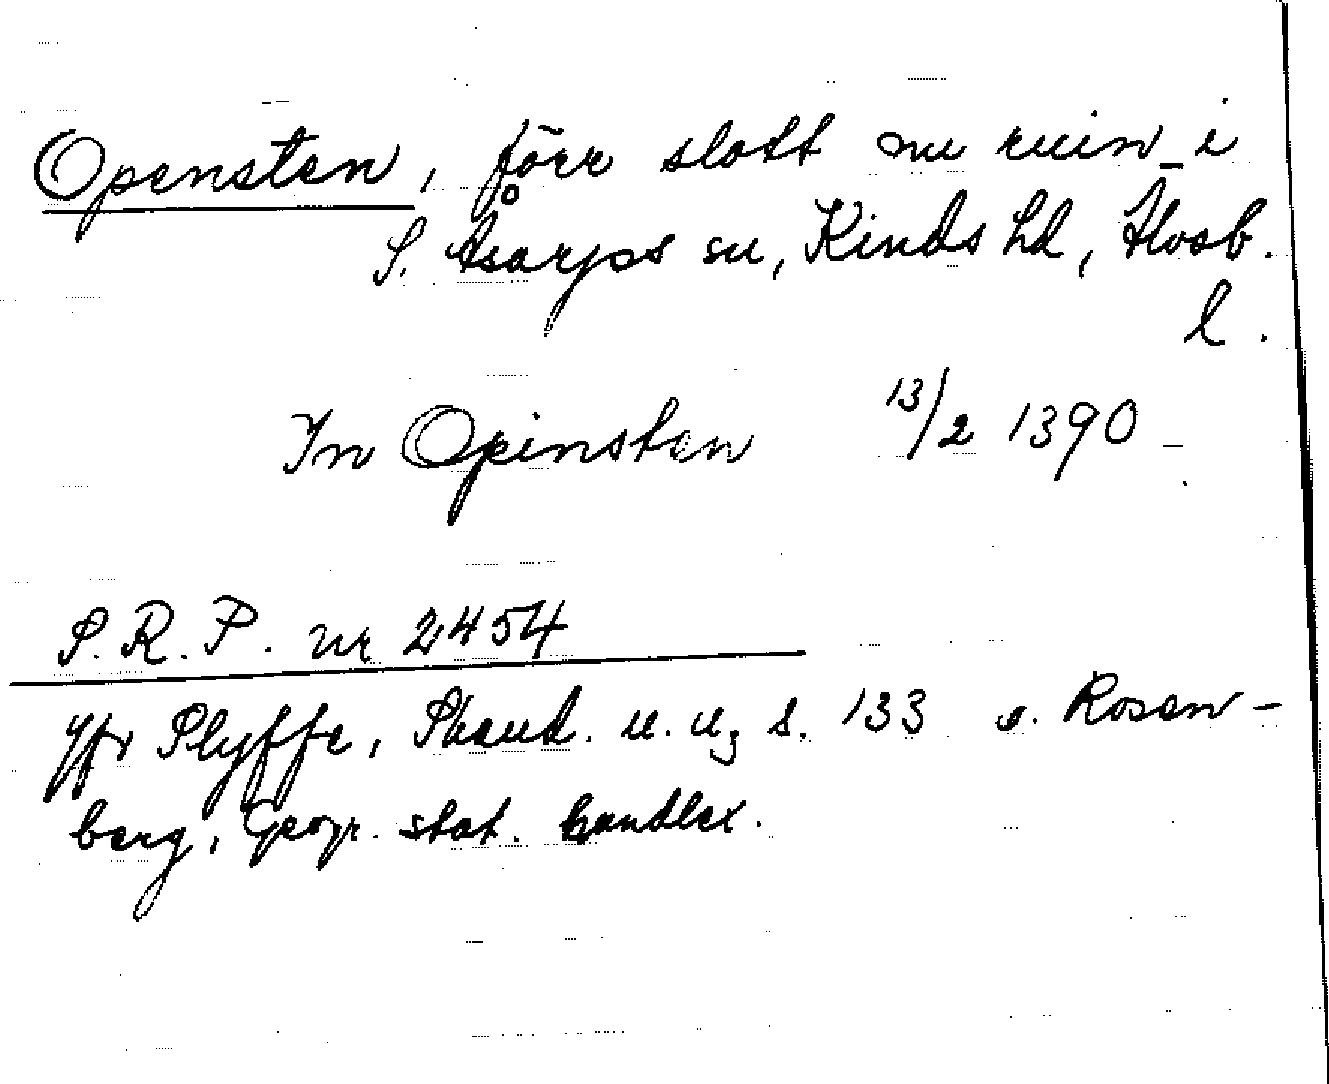 Opensten, förr slott nu ruin i
S. Åsarps sn, Kinds hd, Älvsb.
l.
In Opinsten 13/2 1390
S. R. P. nr 2454
Jfr Styffe, Skand. u. u; s. 133 o. Rosen-
berg, Geogr. stat. handlex.